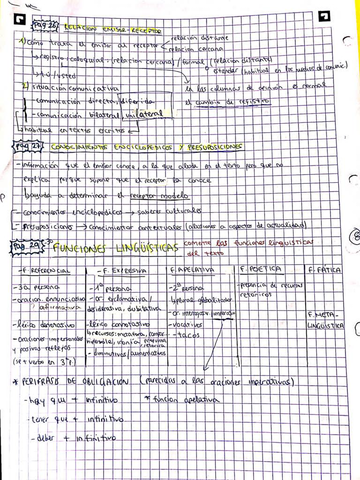 Pag 26 RELACIÓN EMISOR-RECEPTOR
1) Cómo trata el emisor al receptor relación distante
relación cercana
registro coloquial (relación cercana) / formal (relación distante)
estándar (habitual en los medios de comunic.)
tú / usted
en las columnas de opinión es normal
el cambio de registro
2) Situación comunicativa
- comunicación directa / diferida
- comunicación bilateral / unilateral
habitual en textos escritos
Pag 27 CONOCIMIENTOS ENCICLOPÉDICOS Y PRESUPOSICIONES
- Información que el emisor conoce, a la que alude en el texto pero que no
explica porque supone que el receptor la conoce
ayuda a determinar el receptor modelo
- conocimientos enciclopédicos → saberes culturales
- Presuposiciones → conocimientos contextuales (alusiones a aspectos de actualidad)
Pag 29-30 FUNCIONES LINGÜÍSTICAS comente las funciones lingüísticas
del texto
- F. REFERENCIAL
- 3ª persona
- oración enunciativa
afirmativa
- léxico denotativo
- oraciones impersonales
y pasivas reflejas
(se + verbo en 3ªp)
- F. EXPRESIVA
- 1ª persona
- or exclamativa /
desiderativa, dubitativa
- léxico connotativo
- diminutivos / aumentativos
F. APELATIVA
- 2ª persona
- or interrogativa / imperativa
- vocativos
- tacos
F. POÉTICA
- presencia de recursos
retóricos
F. FÁTICA
F. META-
LINGÜÍSTICA
* PERÍFRASIS DE OBLIGACIÓN (parecidas a las oraciones imperativas)
- hay que + infinitivo * función apelativa
- tener que + infinitivo
- deber + infinitivo